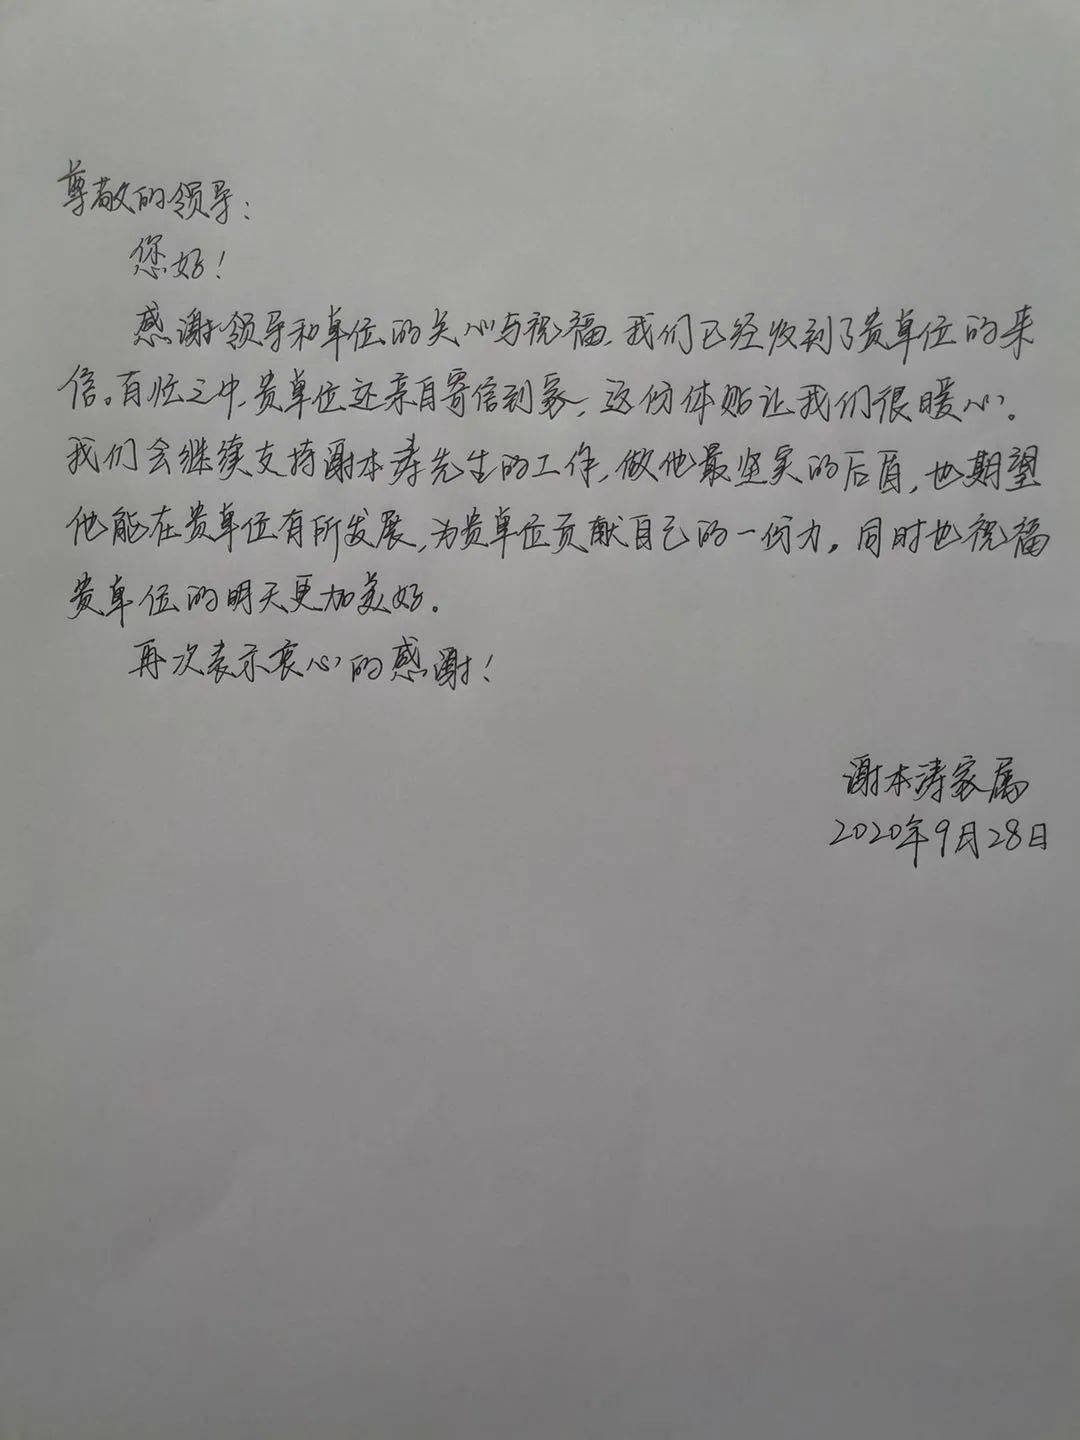 尊敬的领导：
您好！
感谢领导和单位的关心与祝福，我们已经收到了贵单位的来
信。百忙之中，贵单位还亲自寄信到家，这份体贴让我们很暖心。
我们会继续支持谢本涛先生的工作，做他最坚实的后盾，也期望
他能在贵单位有所发展，为贵单位贡献自己的一份力。同时也祝福
贵单位的明天更加美好。
再次表示衷心的感谢！
谢本涛家属
2020年9月28日